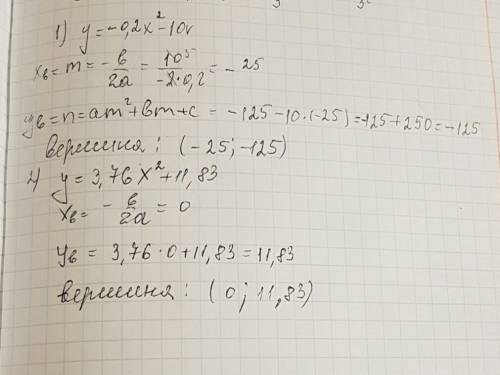 1) y = -0,2x² - 10x
xв = m = - в/2а = 10⁵/-2·0,2 = - 25
yв = n = am² + вm + c = - 125 - 10·(-25) = -125 + 250 = -125
вершина: (-25; -125)
2) y = 3,76 x² + 11,83
xв = - в/2а = 0
yв = 3,76·0 + 11,83 = 11,83
вершина: (0; 11,83)